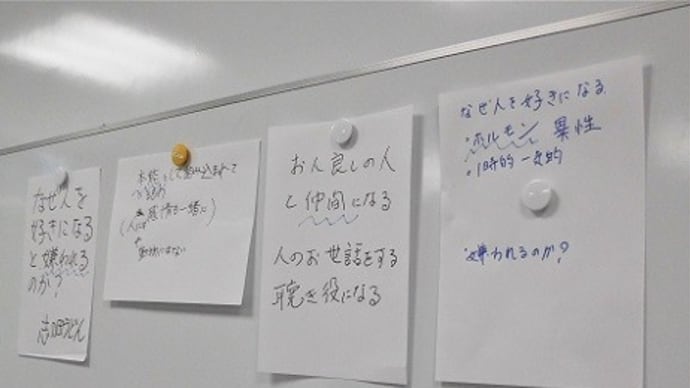 なぜ人を
好きになる
と嫌われる
のか?
本能として組み込まれて
いるから
(人は感情も一緒に)
動物にはない
お人良しの人
と仲間になる
人のお世話をする
聴き役になる
なぜ人を好きになる
・ホルモン 異性
・1時的 一友的
嫌われるのか?